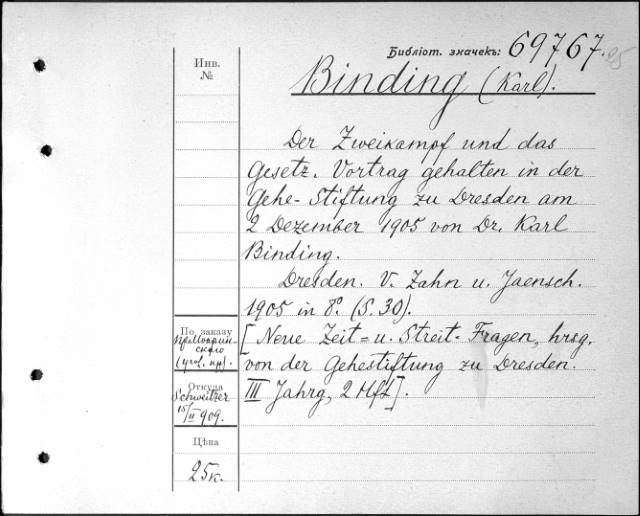 Библіот. значекъ: 69767.
25
Инв.
№
Binding (Karl).
Der Zweikampf und das
Gesetz. Vortrag gehalten in der
Gehe-Stiftung zu Dresden am
2 Dezember 1905 von Dr. Karl
Binding.
Dresden. V. Zahn u. Jaensch.
1905 in 8º. (S. 30).
[Neue Zeit= u. Streit-Fragen, hrsg.
von der Gehestiftung zu Dresden.
III Jahrg, 2 Hft].
По заказу
пр.
скаго
(угол. пр).
Откуда
Schweitzer
15/II 909.
Цѣна
25к.